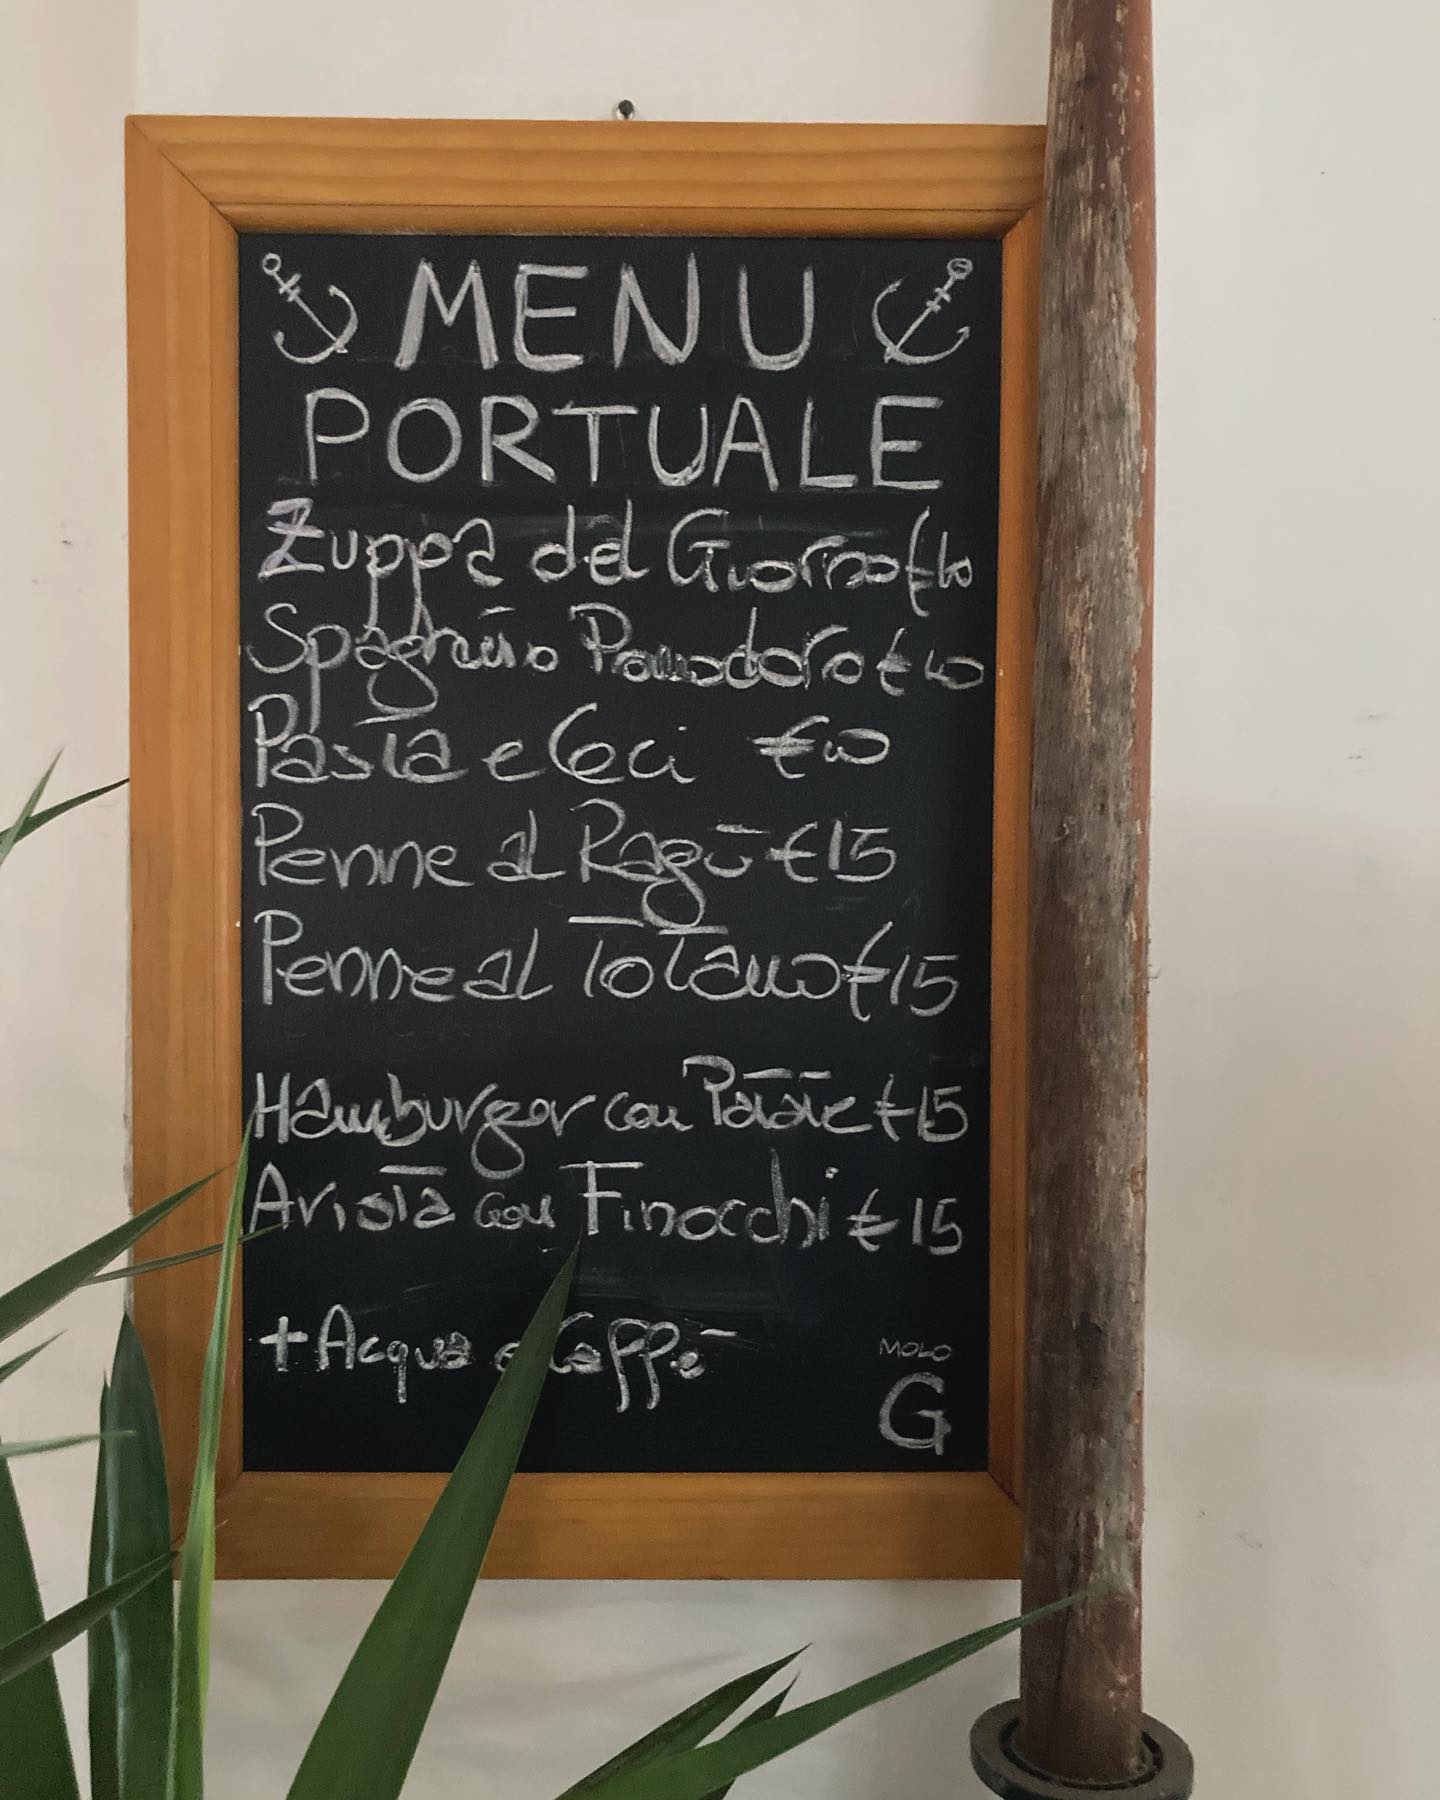 MENU
PORTUALE
Zuppa del Giorno €10
Spaghetto Pomodoro €10
Pasta e Ceci €10
Penne al Ragù €15
Penne al Totano €15
Hamburger con Patate €15
Arista con Finocchi €15
+ Acqua e Caffè
MOLO
G